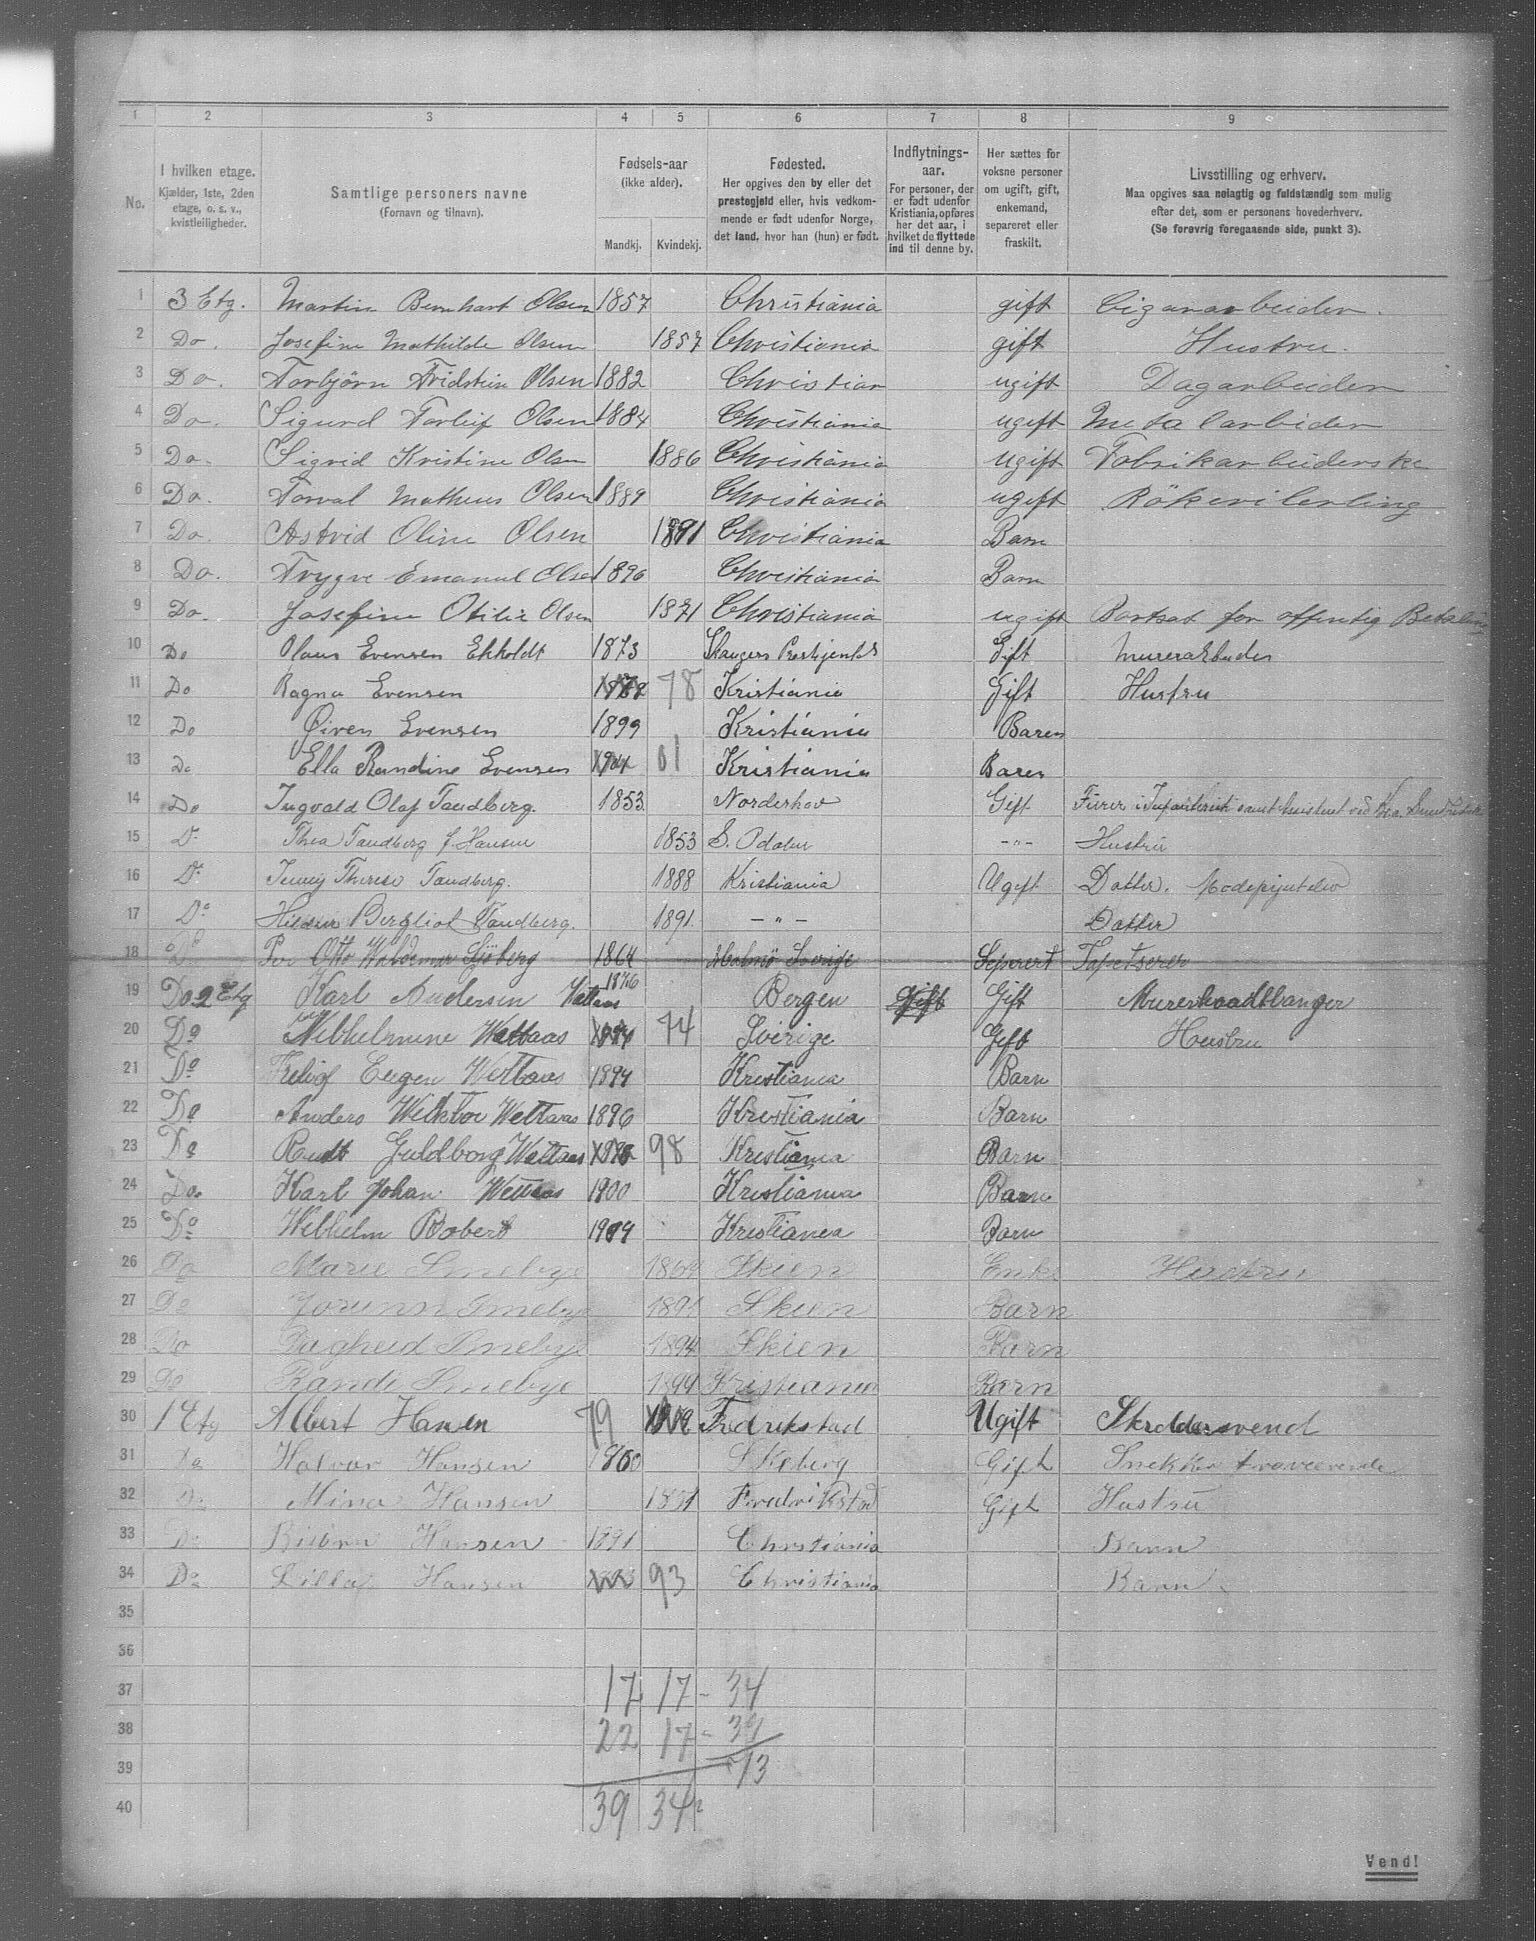 1 2 3 4 5 6 7 8 9
No.
I hvilken etage.
Kjælder, 1ste, 2den
etage, o. s. v.,
kvistleiligheder.
Samtlige personers navne
(Fornavn og tilnavn).
Fødsels-aar
(ikke alder).
Mandkj. Kvindekj.
Fødested.
Her opgives den by eller det
prestegjeld eller, hvis vedkom-
mende er født udenfor Norge,
det land, hvor han (hun) er født.
Indflytnings-
aar.
For personer, der
er født udenfor
Kristiania, opføres
her det aar, i
hvilket de flyttede
ind til denne by.
Her sættes for
voksne personer
om ugift, gift,
enkemand,
separeret eller
fraskilt.
Livsstilling og erhverv.
Maa opgives saa nøiagtig og fuldstændig som mulig
efter det, som er personens hovederhverv.
(Se forøvrig foregaaende side, punkt 3).
1 3 Etg. Martin Bernhart Olsen 1857 Christiania gift Cigararbeider.
2 Do. Josefine Mathilde Olsen 1857 Christiania gift Hustru.
3 Do. Torbjørn Fridstein Olsen 1882 Christian ugift Dagarbeider
4 Do. Sigurd Torleif Olsen 1884 Christiania ugift Metalarbider
5 Do. Sigrid Kristine Olsen 1886 Christiania ugift Fabrikarbeiderske
6 Do. Torval Matheus Olsen 1889 Christiania ugift
7 Do. Astrid Oline Olsen 1891 Christiania Barn
8 Do. Trygve Emanuel Olsen 1896 Christiania Barn
9 Do. Josefine Otilie Olsen 1871 Christiania ugift Bortsat for offentig Betaling
10 Do Olaus Evensen Ekholdt 1873 Skaugers Prestgjeld Gift Murerarbeider
11 Do Ragna Evensen 78 Kristiania Gift Hustru
12 Do Øiven Evensen 1899 Kristiania Baren
13 Do Ella Randine Evensen 01 Kristiania Baren
14 Do Ingvald Olaf Tandberg. 1853 Norderhov Gift Furer i Infanteriet samt
15 Do Thea Tandberg f. Hansen 1853 S. Odalen -"- Hustru
16 Do Jenny Therese Tandberg. 1888 Kristiania Ugift Datter. Modepyntelev
17 Do Hildur Bergliot Tandberg. 1891. -"- Datter
18 Do Per Otto Waldemar Sjöberg 1864 Malmø Sverige Seperert Tapetserer
19 Do 2 Etg Karl Andersen Wettaas 1876 Bergen Gift Gift Murerhaadtlanger
20 Do Wilhelmine Wettaas 74 Sverige Gift Hustru
21 Do Fritjof Eugen Wettaas 1894 Kristiania Barn
22 Do Anders Wicktor Wettaas 1896 Kristiania Barn
23 Do Rudt Guldborg Wettaas 98 Kristiania Barn
24 Do. Karl Johan Wettaas 1900 Kristiania Barn
25 Do Wilhelm Robert 1904 Kristiania Barn
26 Do Marie Smebye 1864 Skien Enke Hustru
27 Do Jorunn Smebye 1891 Skien Barn
28 Do Ragheid Smebye 1894 Skien Barn
29 Do Randi Smebye 1899 Kristiania Barn
30 1 Etg Albert Hansen 79 Fredrikstad Ugift Skreddersvend
31 Do Halvar Hansen 1860 Skeberg Gift Snekker
32 Do Mina Hansen 1851 Fredrikstad Gift Hustru
33 Do Biørn Hansen 1891 Christiania Barn
34 Do Lilla Hansen 93 Christiania Barn
35
36
37 17 17 - 34
38 22 17 - 39
39 73
40 39 34
Vend!